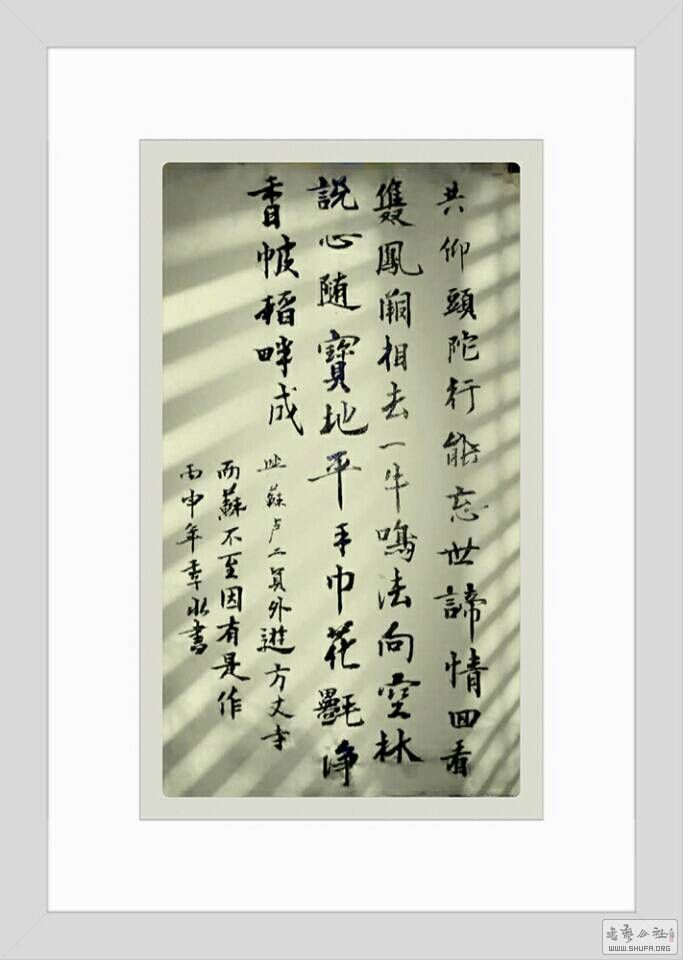 共仰頭陀行能忘世諦情囬看
雙鳳闕相去一牛鳴法向空林
説心随寶地平手巾花氎净
香帔稻畔成
此蘇卢二員外遊方丈寺
而蘇不至因有是作
丙申年水書
书艺公社
WWW.SHUFA.ORG